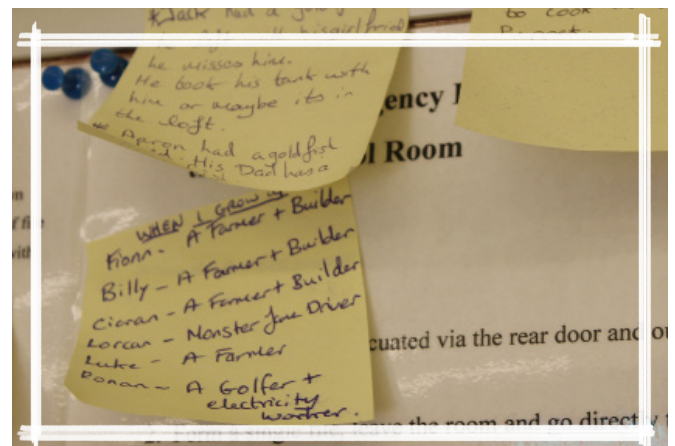 *Jack had a
his girlfriend
he misses him.
He took his tank with
him or maybe its in
the loft.
* Aaron had a goldfish
His Dad has a
to cook
WHEN I GROW UP
Fionn - A Farmer + Builder
Billy - A Farmer + Builder
Ciaran - A Farmer + Builder
Lorcan - Monster Driver
Luke - A Farmer
Ronan - A Golfer +
electricity
worker.
Room
cuated via the rear door and
leave the room and go directly